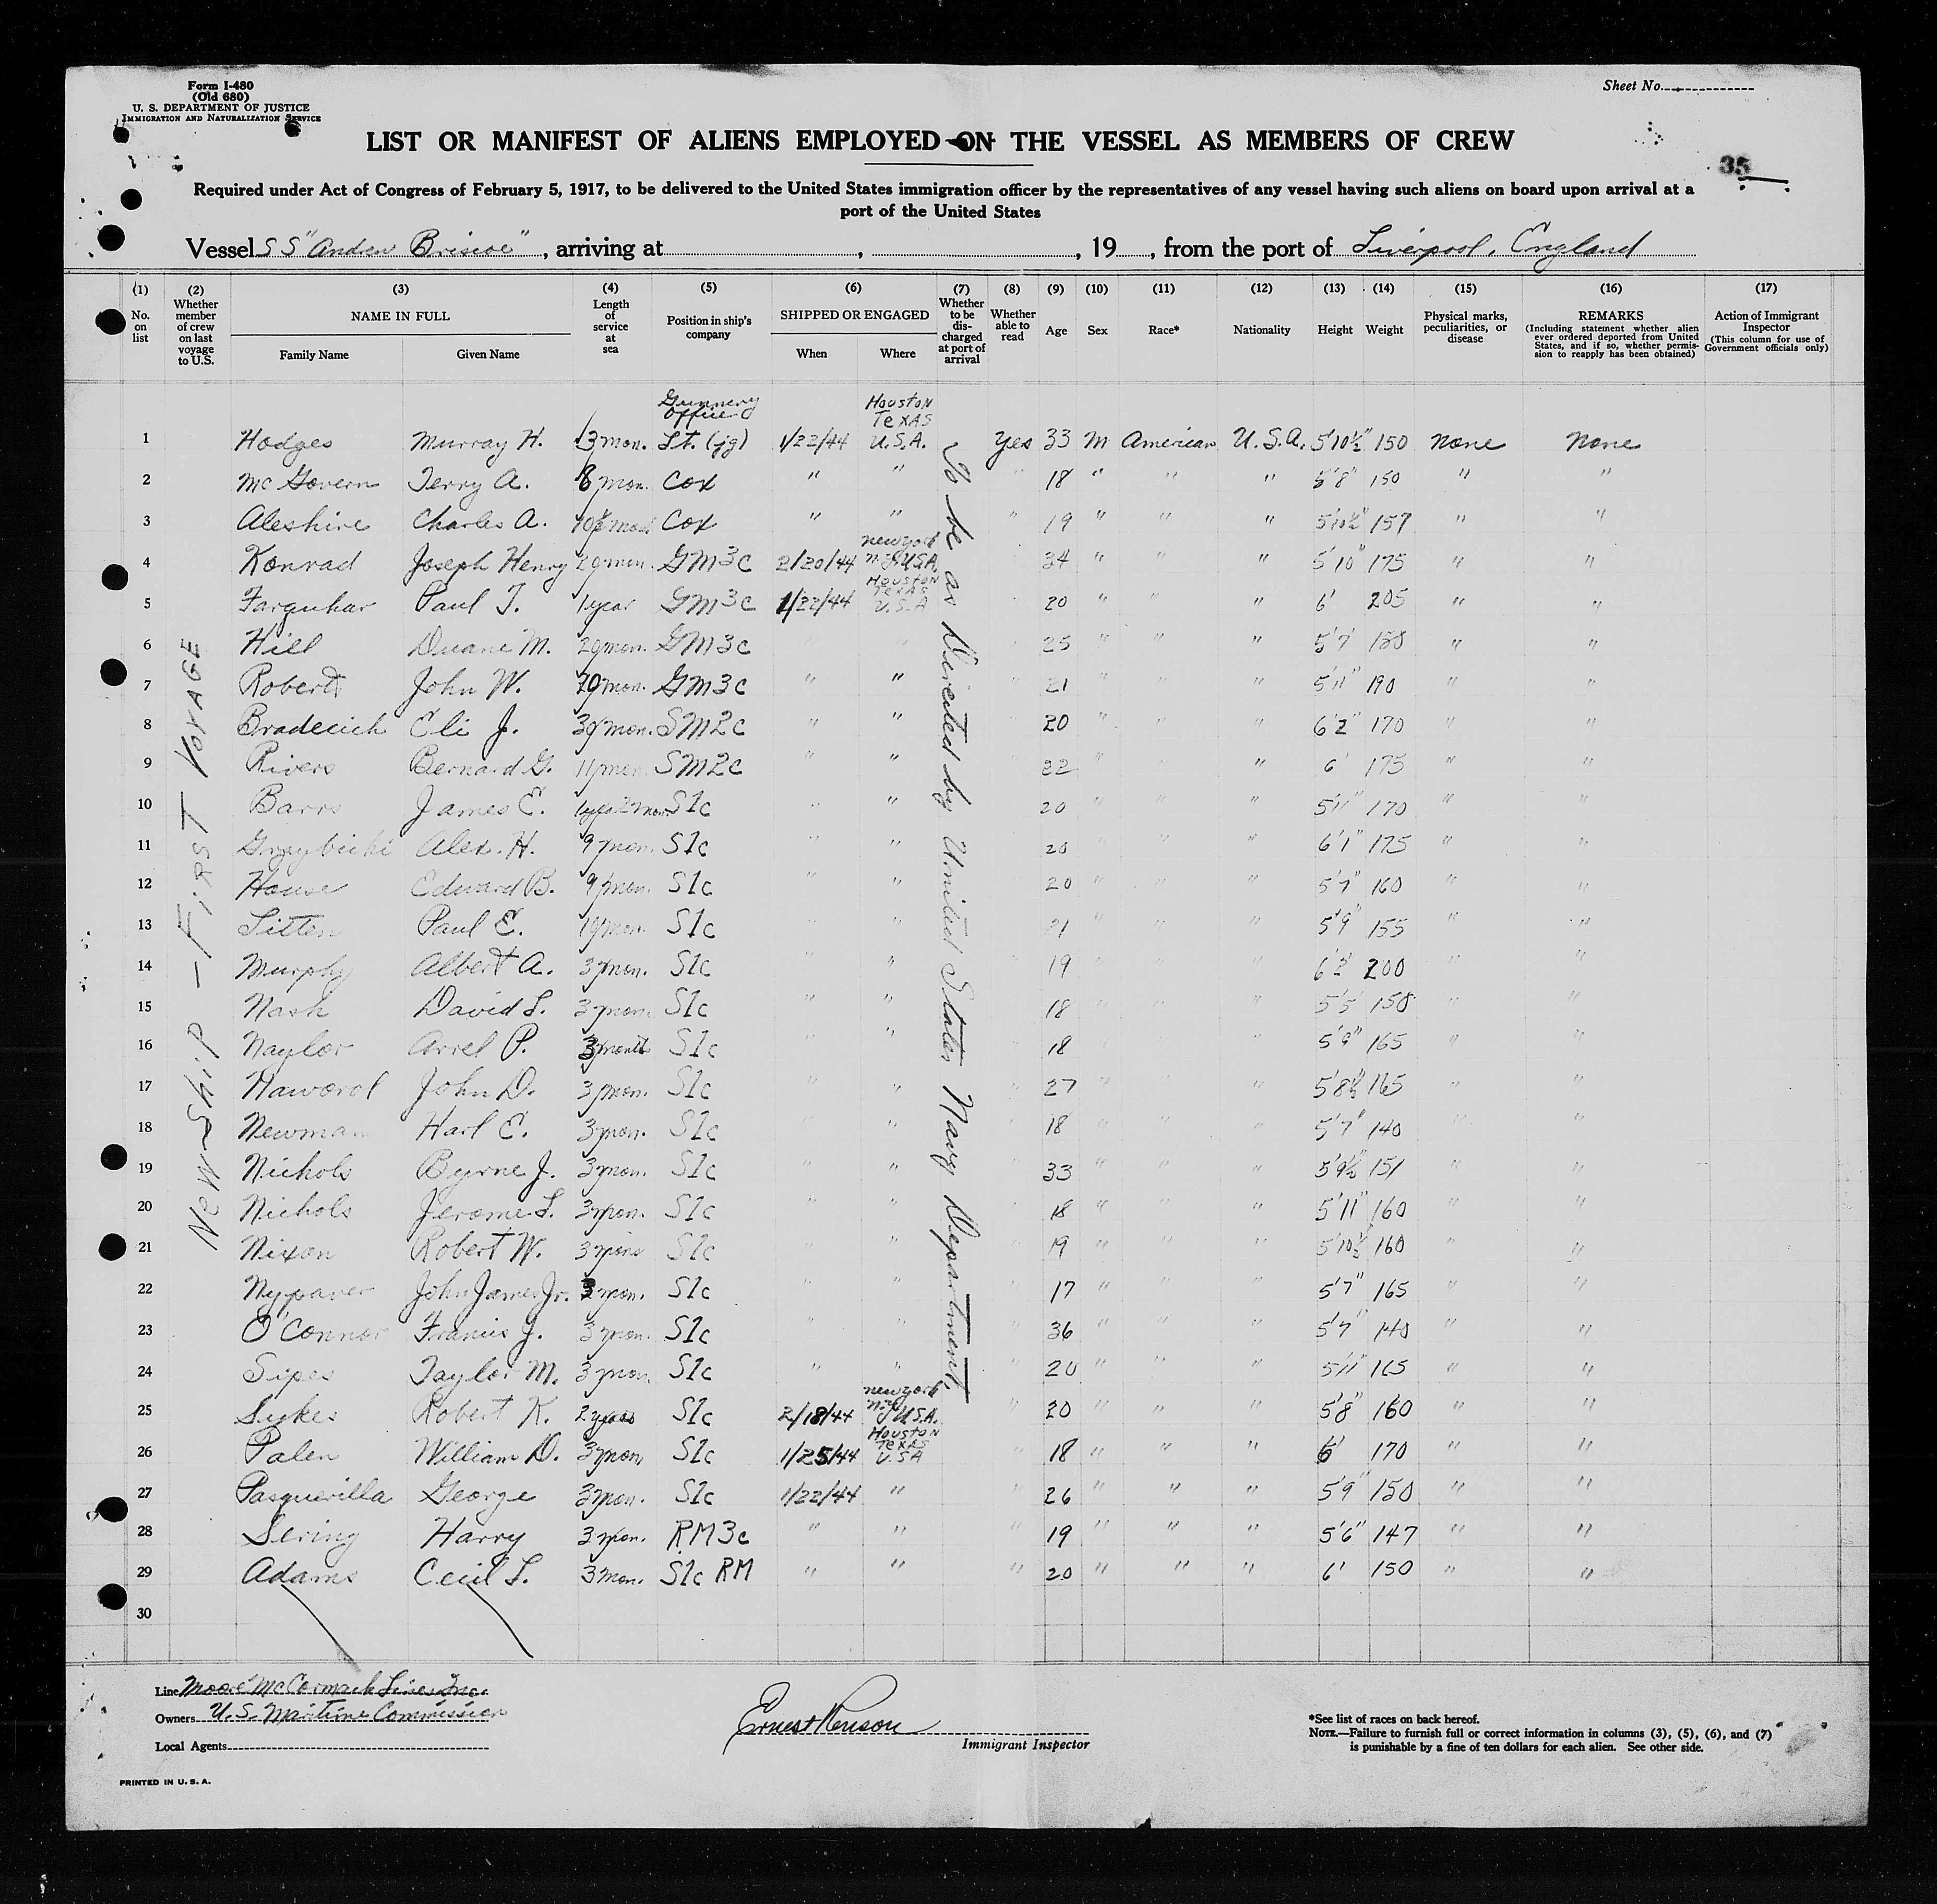 Form I-480
(Old 680)
U. S. DEPARTMENT OF JUSTICE
IMMIGRATION AND NATURALIZATION SERVICE
Sheet No.
LIST OR MANIFEST OF ALIENS EMPLOYED ON THE VESSEL AS MEMBERS OF CREW
35
Required under Act of Congress of February 5, 1917, to be delivered to the United States immigration officer by the representatives of any vessel having such aliens on board upon arrival at a
port of the United States
Vessel SS "Andrew Briscoe", arriving at , , 19 , from the port of Liverpool, England
(1) No. on list
(2) Whether member of crew on last voyage to U.S.
(3) NAME IN FULL Family Name Given Name
(4) Length of service at sea
(5) Position in ship's company
(6) SHIPPED OR ENGAGED When Where
(7) Whether to be discharged at port of arrival
(8) Whether able to read
(9) Age
(10) Sex
(11) Race*
(12) Nationality
(13) Height
(14) Weight
(15) Physical marks, peculiarities, or disease
(16) REMARKS (Including statement whether alien ever ordered deported from United States, and if so, whether permission to reapply has been obtained)
(17) Action of Immigrant Inspector (This column for use of Government officials only)
New Ship - First Voyage
To be as Directed by United States Navy Department.
Gunnery Officer Houston Texas
1 Hodges Murray H. 13 mon. Lt. (jg) 1/22/44 U.S.A. Yes 33 M American U.S.A. 5'10½" 150 None None
2 McGovern Terry A. 8 mon. Cox " " " 18 " " " 5'8" 150 " "
3 Aleshire Charles A. Cox " " " 19 " " " 5'10½" 157 " "
4 Konrad Joseph Henry 20 mon. GM3c 2/20/44 New York N.Y. U.S.A. " 34 " " " 5'10" 175 " "
5 Farquhar Paul T. 1 year GM3c 1/22/44 Houston Texas U.S.A " 20 " " " 6' 205 " "
6 Hill Duane M. 20 mon. GM3c " " " 25 " " " 5'7" 180 " "
7 Robert John W. GM3c " " " 21 " " " 5'11" 190 " "
8 Eli J. SM2c " " " 20 " " " 6'2" 170 " "
9 Rivers Bernard G. 11 mon. SM2c " " " 22 " " " 6' 175 " "
10 Barrs James E. 1 year 2 mon. S1c " " " 20 " " " 5'11" 170 " "
11 Alex. H. 9 mon. S1c " " " 20 " " " 6'1" 175 " "
12 House Edward B. 9 mon. S1c " " " 20 " " " 5'7" 160 " "
13 Paul E. S1c " " " 21 " " " 5'9" 155 " "
14 Murphy Albert A. 3 mon. S1c " " " 19 " " " 6'2" 200 " "
15 Nash David L. 3 mon. S1c " " " 18 " " " 5'5" 158 " "
16 Naylor Arrel P. 3 month S1c " " " 18 " " " 5'9" 165 " "
17 John D. 3 mon. S1c " " " 27 " " " 5'8½ 165 " "
18 Newman Harl E. 3 mon. S1c " " " 18 " " " 5'7" 140 " "
19 Nichols Byrne J. 3 mon. S1c " " " 33 " " " 5'9½" 151 " "
20 Nichols Jerome L. 3 mon. S1c " " " 18 " " " 5'11" 160 " "
21 Nixon Robert W. 3 mon. S1c " " " 19 " " " 5'10½ 160 " "
22 Nypaver John James Jr. 3 mon. S1c " " " 17 " " " 5'7" 165 " "
23 O'Connor Francis J. 3 mon. S1c " " " 36 " " " 5'7" 140 " "
24 Sipes Taylor M. 3 mon. S1c " " " 20 " " " 5'11" 165 " "
25 Sykes Robert K. 2 years S1c 2/18/44 New York N.Y. U.S.A. " 20 " " " 5'8" 160 " "
26 Palen William D. 3 mon. S1c 1/25/44 Houston Texas U.S.A " 18 " " " 6' 170 " "
27 Pasquerilla George 3 mon. S1c 1/22/44 " " 26 " " " 5'9" 150 " "
28 Sering Harry 3 mon. RM3c " " " 19 " " " 5'6" 147 " "
29 Adams Cecil L. 3 mon. S1c RM " " " 20 " " " 6' 150 " "
30
Line Moore McCormack Lines Inc.
Owners U.S. Maritime Commission
Local Agents
Immigrant Inspector
*See list of races on back hereof.
NOTE.—Failure to furnish full or correct information in columns (3), (5), (6), and (7)
is punishable by a fine of ten dollars for each alien. See other side.
PRINTED IN U. S. A.